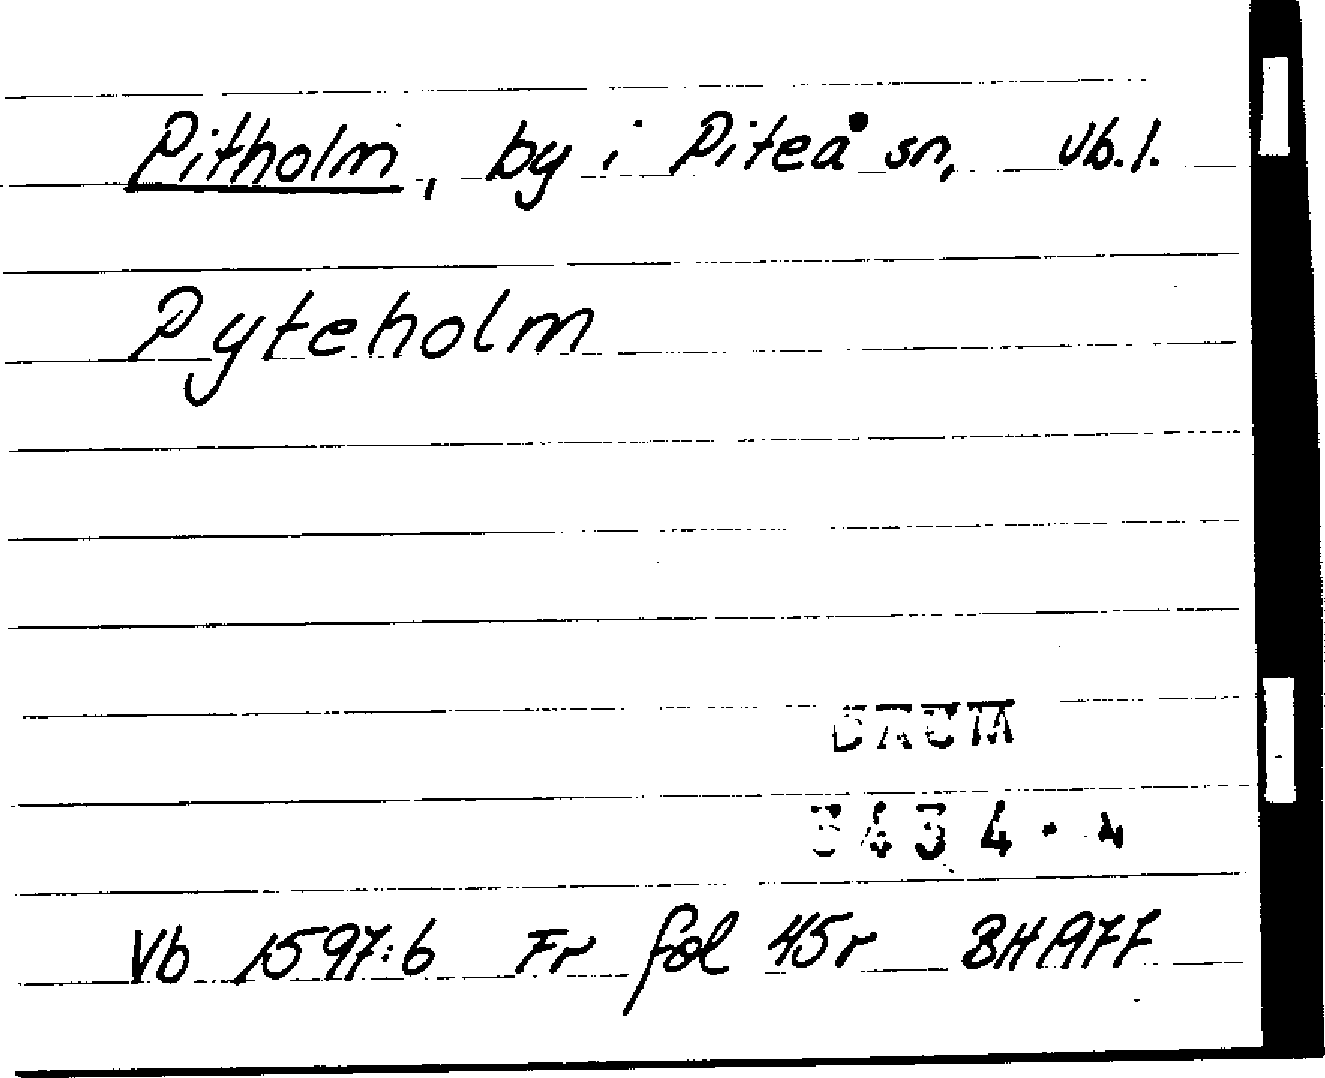 Pitholm, by i Piteå sn, Vb.l.
Pyteholm
3434 · 4
Vb 1597:6 Fr fol 45r BH1977